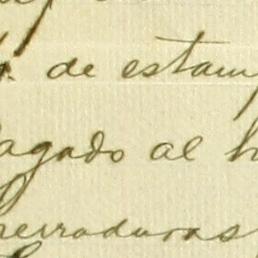 de estam
agado al h
herraduras